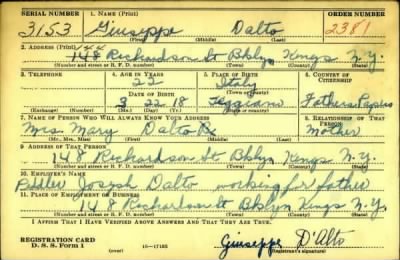 SERIAL NUMBER 1. NAME (Print) ORDER NUMBER
3153 Giuseppe Dalto 2381
(First) (Middle) (Last)
2. ADDRESS (Print) 144
148 Richardson St Bklyn Kings N.Y.
(Number and street or R. F. D. number) (Town) (County) (State)
3. TELEPHONE 4. AGE IN YEARS 5. PLACE OF BIRTH 6. COUNTRY OF CITIZENSHIP
22 Italy
DATE OF BIRTH (Town or county)
3 22 18 Teggiano Fathers Papers
(Exchange) (Number) (Mo.) (Day) (Yr.) (State or country)
7. NAME OF PERSON WHO WILL ALWAYS KNOW YOUR ADDRESS 8. RELATIONSHIP OF THAT PERSON
Mrs. Mary Dalto Mother
(Mr., Mrs., Miss) (First) (Middle) (Last)
9. ADDRESS OF THAT PERSON
148 Richardson St Bklyn Kings N.Y.
(Number and street or R. F. D. number) (Town) (County) (State)
10. EMPLOYER'S NAME
Peddler Joseph Dalto working for father
11. PLACE OF EMPLOYMENT OR BUSINESS
148 Richardson St Bklyn Kings N.Y.
(Number and street or R. F. D. number) (Town) (County) (State)
I AFFIRM THAT I HAVE VERIFIED ABOVE ANSWERS AND THAT THEY ARE TRUE.
REGISTRATION CARD
D. S. S. Form 1 (over) 16—17105 Giuseppe D'Alto
(Registrant's signature)